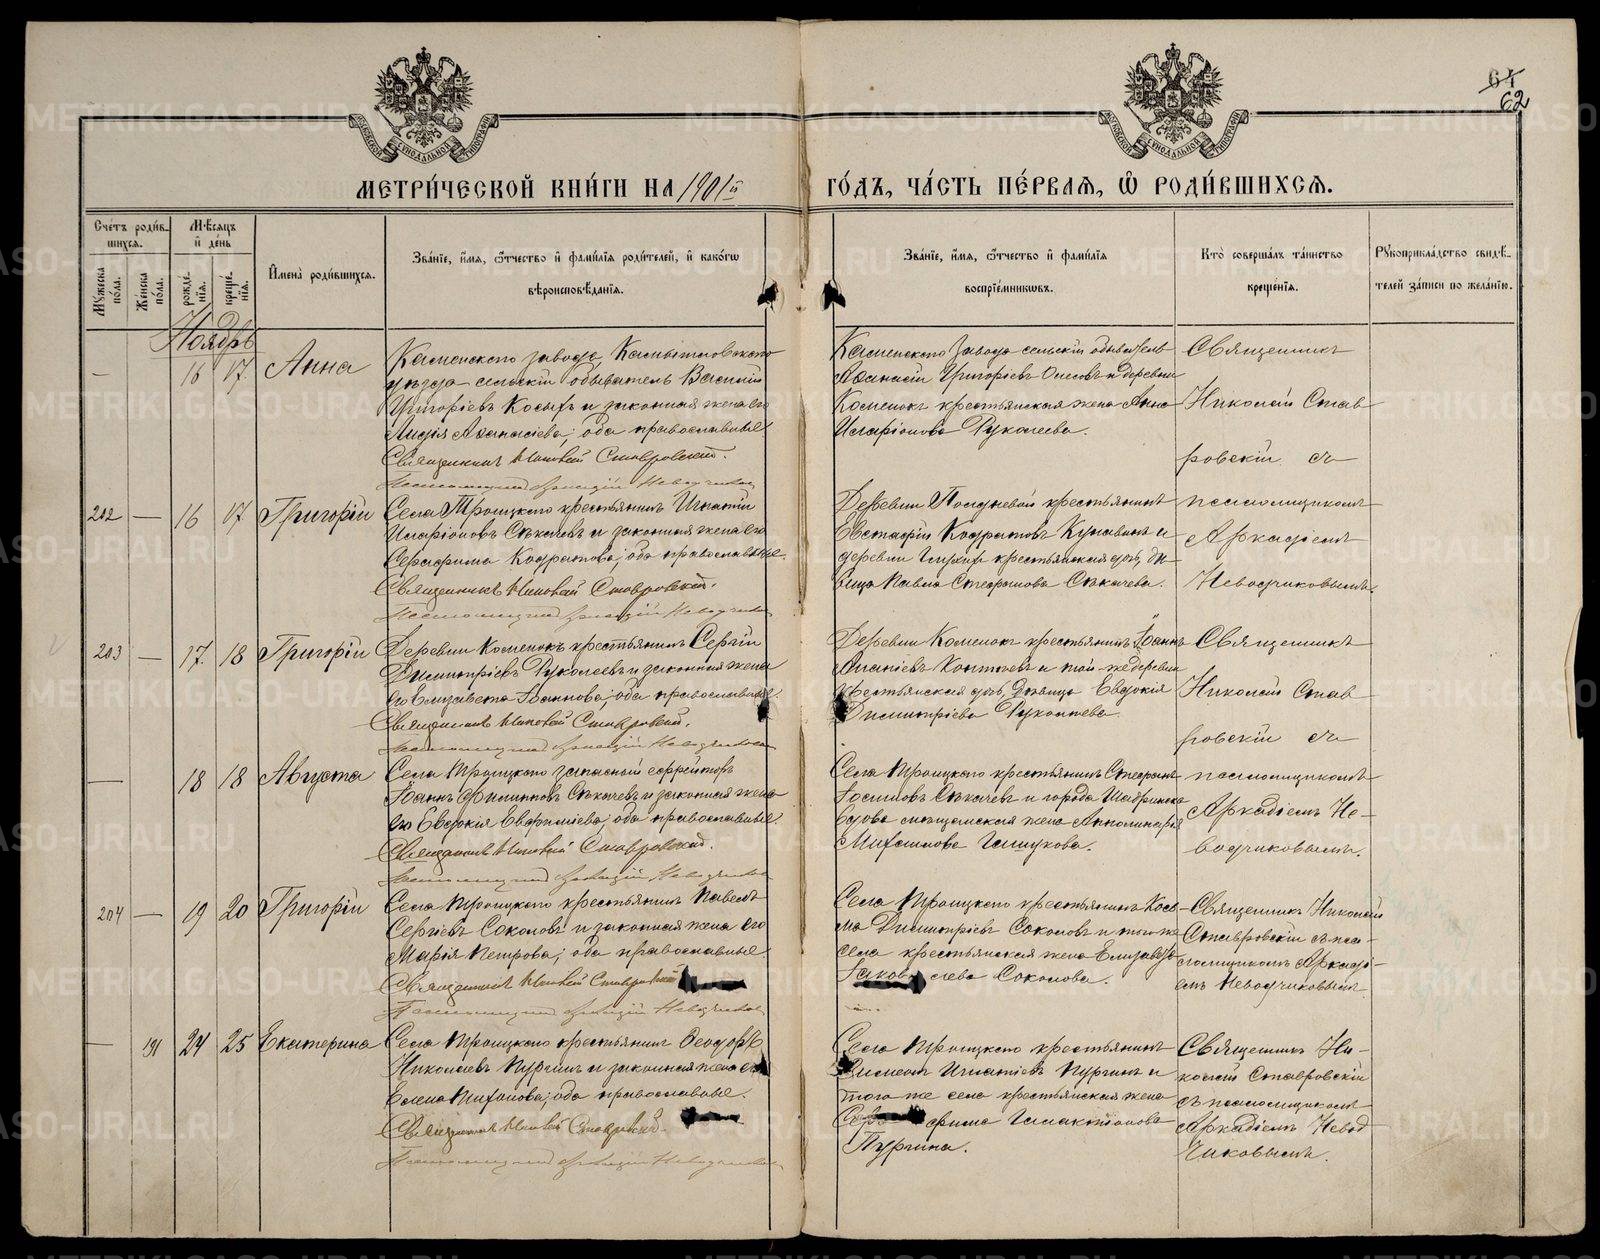 64
62
МОСКОВСКОЙ СѴНОДАЛЬНОЙ ТИПОГРАФІИ
МОСКОВСКОЙ СѴНОДАЛЬНОЙ ТИПОГРАФІИ
МЕТРИ́ЧЕСКОЙ КНИ́ГИ НА 1901й ГО́ДЪ, ЧА́СТЬ ПЕ́РВАѦ, Ѽ РОДИ́ВШИХСѦ.
Сче́тъ роди́в-
шихсѧ.
Мꙋжеска по́ла.
Же́нска по́ла.
Мѣ́сѧцъ
и҆ де́нь
рожде́-
нїѧ.
креще́-
нїѧ.
И҆мена̀ роди́вшихсѧ.
Зва́нїе, и҆́мѧ, ѻ҆́тчество и҆ фами́лїѧ роди́телей, и҆ како́гѡ
вѣроисповѣ́данїѧ.
Зва́нїе, и҆́мѧ, ѻ҆́тчество и҆ фами́лїѧ
воспрїе́мникѡвъ.
Кто̀ соверша́лъ та́инство
креще́нїѧ.
Рꙋкоприкла́дство свидѣ́-
телей за́писи по жела́нїю.
Ноябрь
— 16 17 Анна
Каменскаго завода Камышловскаго
уѣзда сельскій обыватель Василій
Григоріевъ Косыхъ и законная жена его
Лидія Аѳанасіева; оба православные
Священникъ Николай Ставровскій.
Псаломщикъ Аркадій Неводчиковъ
Каменскаго завода сельскій обыватель
Аѳанасій Григоріевъ и деревни
Коменокъ крестьянская жена Анна
Иларіонова Рукомеева.
Священникъ
Николай Став
ровскій съ
псаломщикомъ
Аркадіемъ
Неводчиковымъ.
202 — 16 17 Григорій
Села Троицкаго крестьянинъ Игнатій
Иларіоновъ Сѣкачевъ и законная жена его
Серафима Кодратова; оба православные.
Священникъ Николай Ставровскій.
Псаломщикъ Аркадій Неводчиковъ
Деревни крестьянинъ
Евстафій Кодратовъ и
деревни крестьянская дочь, дѣ-
вица Павла Стефанова Сѣкачева.
203 — 17. 18 Григорій
Деревни Коменокъ крестьянинъ Сергій
Димитріевъ Рукомеевъ и законная жена
его Елизавета Іоаннова; оба православные.
Священникъ Николай Ставровскій.
Псаломщикъ Аркадій Неводчиковъ
Деревни Коменокъ крестьянинъ Іоаннъ
и той-же деревни
крестьянская дочь, дѣвица Евдокія
Димитріева
Священникъ
Николай Став
ровскій съ
псаломщикомъ
Аркадіемъ Не-
водчиковымъ.
— 18 18 Августа
Села Троицкаго запасный ефрейторъ
Іоаннъ Филипповъ Сѣкачевъ и законная жена
его Евдокія Евфиміева; оба православные.
Священникъ Николай Ставровскій.
Псаломщикъ Аркадій Неводчиковъ
Села Троицкаго крестьянинъ Стефанъ
Іосифовъ Сѣкачевъ и города Шадринска
вдова мѣщанская жена Апполинарія
Михаилова
204 — 19 20 Григорій
Села Троицкаго крестьянинъ Павелъ
Сергіевъ Соколовъ и законная жена его
Марія Петрова; оба православные.
Священникъ Николай Ставровскій
Псаломщикъ Аркадій Неводчиковъ
Села Троицкаго крестьянинъ Кось
ма Димитріевъ Соколовъ и того же
села крестьянская жена Елизавета
Іаковлева Соколова.
Священникъ Николай
Ставровскій съ пса-
ломщикомъ Аркаді-
емъ Неводчиковымъ
— 191 24 25 Екатерина
Села Троицкаго крестьянинъ Ѳеодоръ
Николаевъ Пургинъ и законная жена его
Елена Тихонова; оба православные.
Священникъ Николай Ставровскій.
Псаломщикъ Аркадій Неводчиковъ
Села Троицкаго крестьянинъ
Филимонъ Игнатіевъ Пургинъ и
того же села крестьянская жена
Серафима Галактіонова
Пургина.
Священникъ Ни-
колай Ставровскій
съ псаломщикомъ
Аркадіемъ Невод
чиковымъ.
METRIKI.GASO-URAL.RU